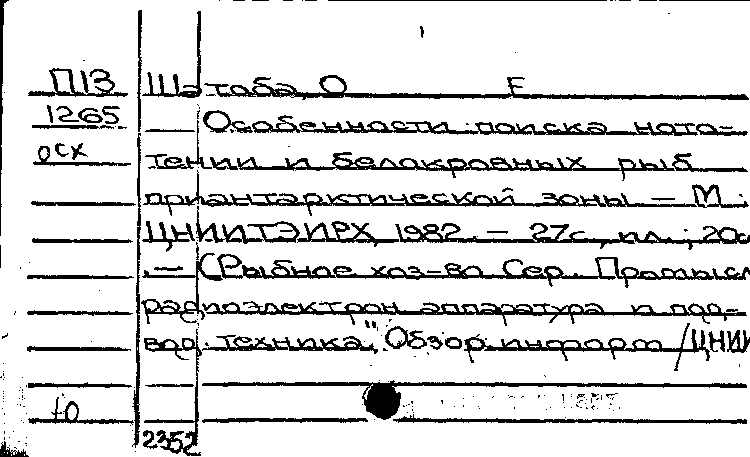 П13 Шатоба, О Е
1265 Особенности поиска ното-
осх тении и белокровных рыб
приантарктической зоны – М.:
ЦНИИТЭИРХ, 1982. – 27с., ил.; 20с
.— (Рыбное хоз-во Сер. Промысл
радиоэлектрон аппаратура и под-
вод. техника". Обзор. информ /ЦНИИ
10
2352